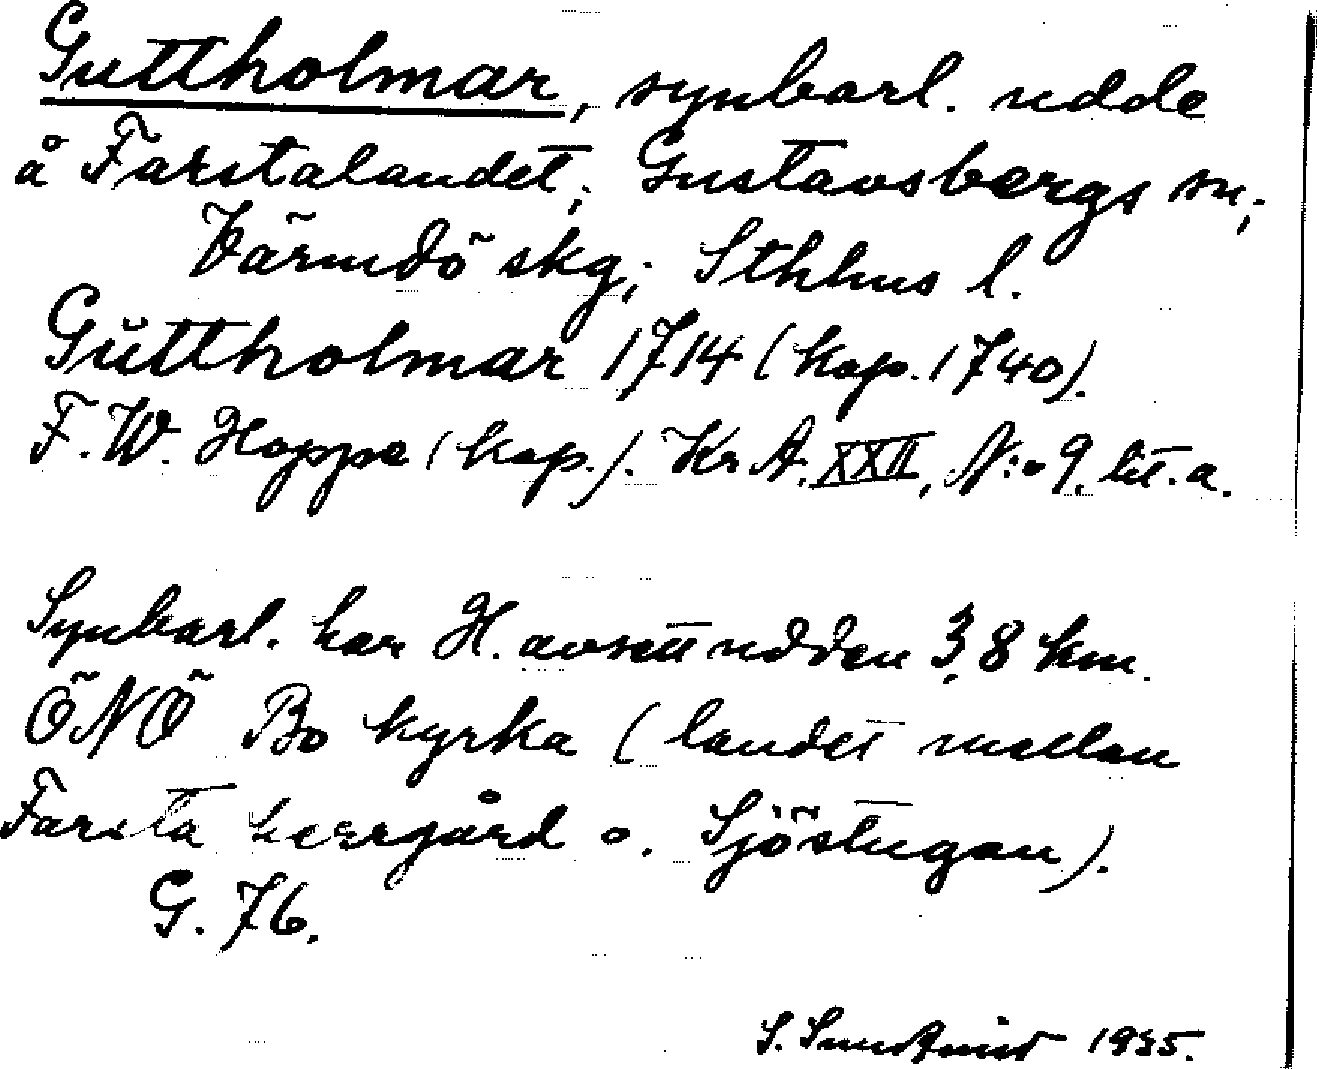 Guttholmar, synbarl. udde
å Farstalandet; Gustavsbergs sn;
Värmdö skg; Sthlms l.
Gŭttholmar 1714 (kop. 1740).
F. W. Hoppe (kop.). Kr A. XXII, N:o 9. lit. a.
Synbarl. har H. avsett udden 3,8 km.
ÖNÖ Bo kyrka (landet mellan
Farsta herrgård o. Sjöstugan).
G. 76.
S. Sundqvist 1935.